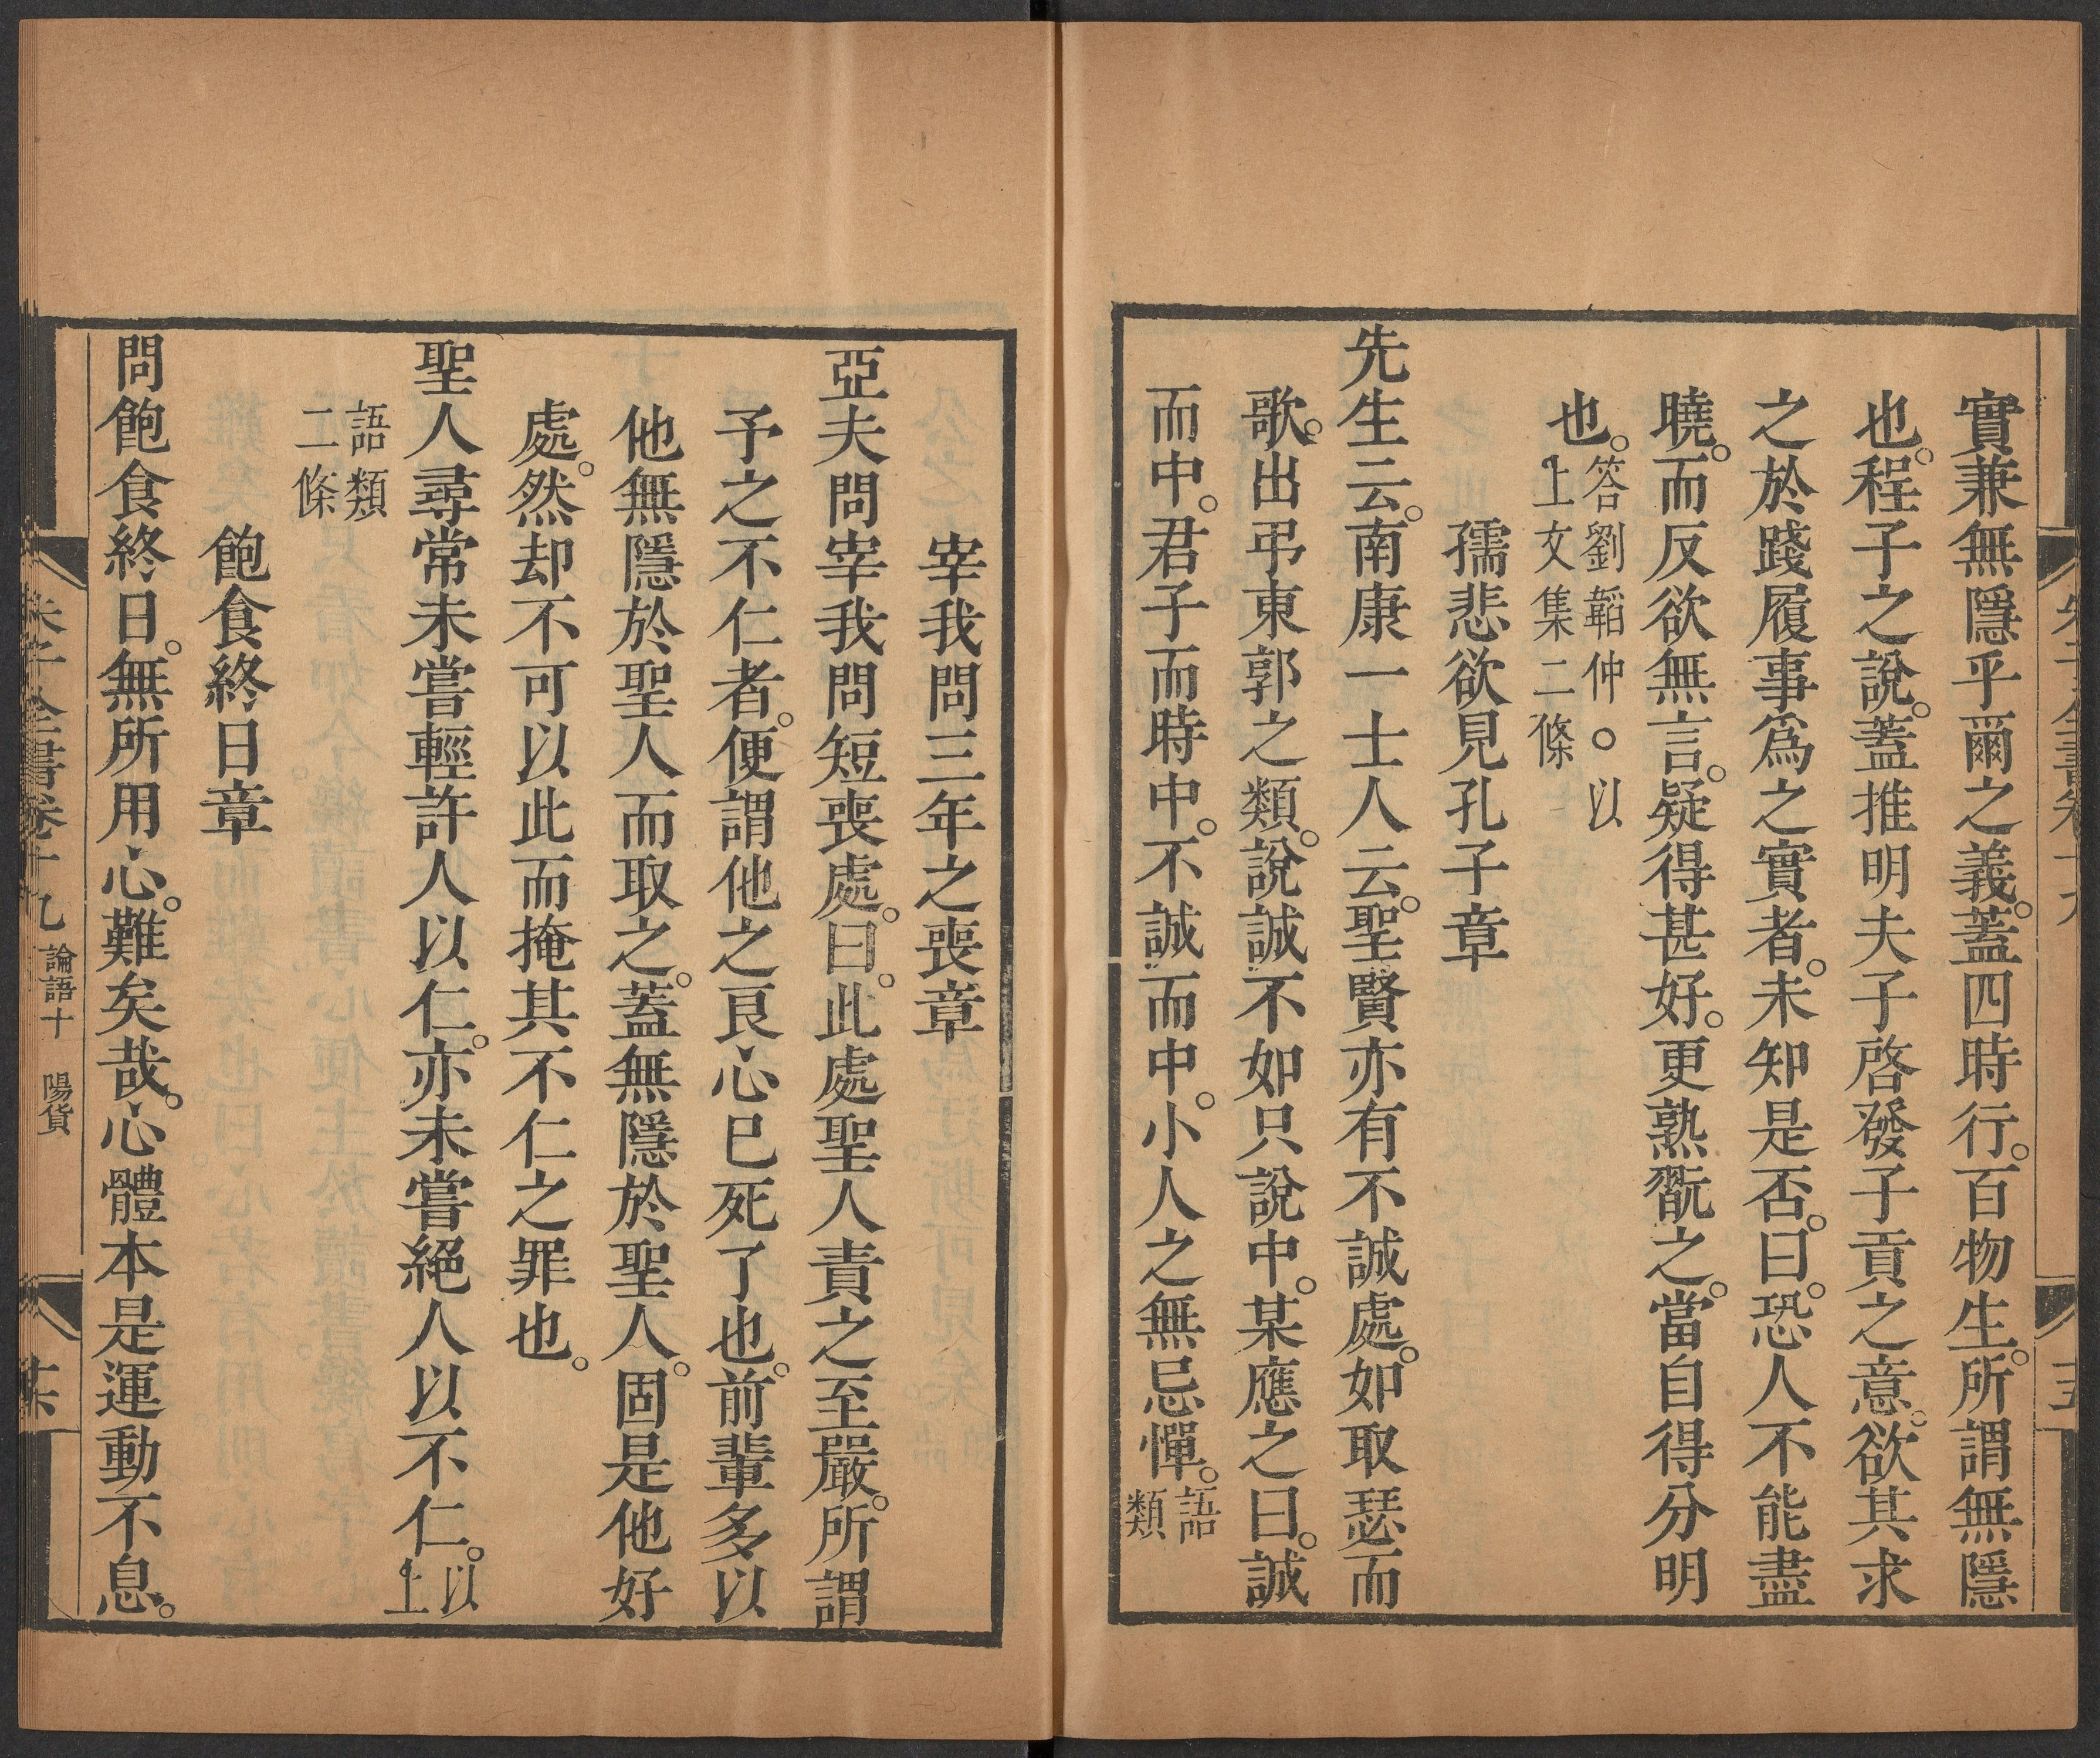 實兼無隱乎爾之義。蓋四時行。百物生。所謂無隱
也。程子之說。蓋推明夫子啓發子貢之意。欲其求
之於踐履事爲之實者。未知是否。曰。恐人不能盡
曉。而反欲無言。疑得甚好。更熟翫之。當自得分明
也。答劉韜仲。以
上文集二條
孺悲欲見孔子章
先生云。南康一士人云。聖賢亦有不誠處。如取瑟而
歌。出弔東郭之類。說誠不如只說中。某應之曰。誠
而中。君子而時中。不誠而中。小人之無忌憚。語
類
宰我問三年之喪章
亞夫問宰我問短喪處。曰。此處聖人責之至嚴。所謂
予之不仁者。便謂他之良心已死了也。前輩多以
他無隱於聖人而取之。蓋無隱於聖人。固是他好
處。然却不可以此而掩其不仁之罪也。
聖人尋常未嘗輕許人以仁。亦未嘗絕人以不仁。以
上
語類
二條
飽食終日章
問飽食終日。無所用心。難矣哉。心體本是運動不息。
朱子全書卷十九 論語十 陽貨